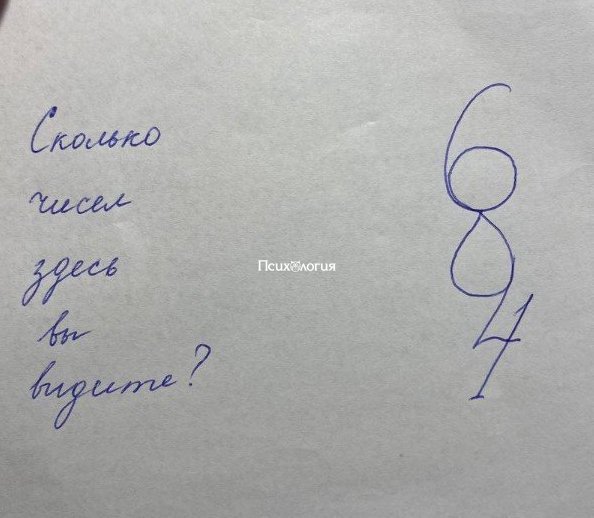 Сколько
чисел
здесь
вы
видите?
Психология
6
8
4